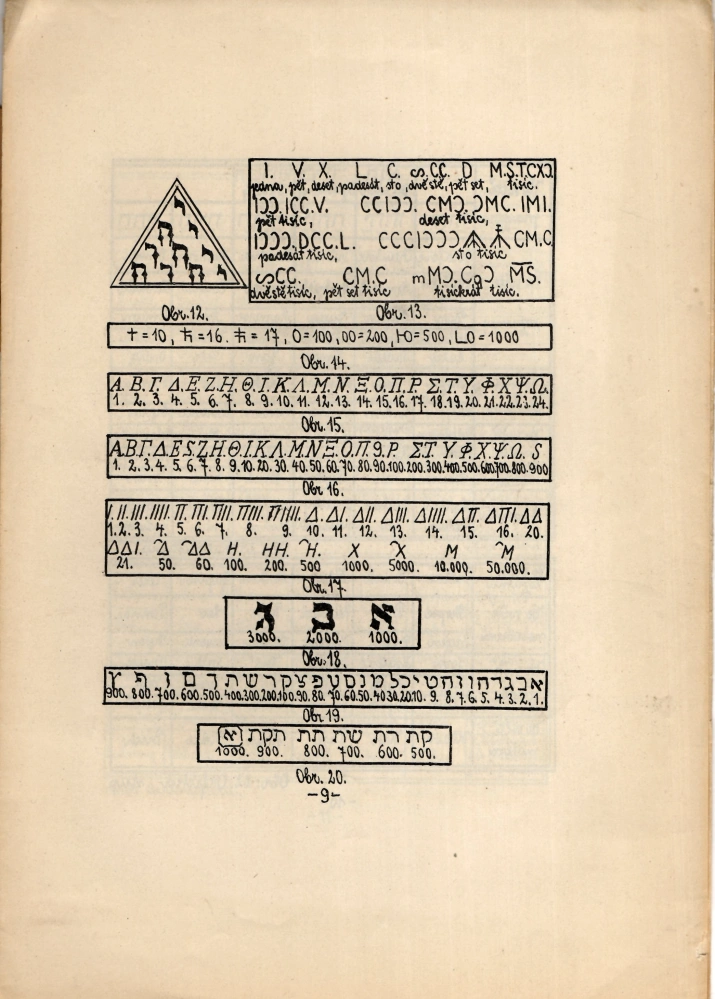 י
ה י
ו ה י
ה ו ה י
I. V. X. L C. ᔕ.CC. D M.S.T.CXƆ.
jedna, pět, deset, padesát, sto, dvě stě, pět set, tisíc.
IƆƆ.ICC.V. CCIƆƆ. CMƆ.ƆMC. IMI.
pět tisíc, deset tisíc,
IƆƆƆ.DCC.L. CCCIƆƆƆ CM.C
padesát tisíc, sto tisíc
ᔕCC. CM.C mMƆ. M̅S̅.
dvě stě tisíc, pět set tisíc tisíckrát tisíc.
Obr.12. Obr.13.
=10, =16. =17, O=100, OO=200, =500, =1000
Obr. 14.
Α. Β. Γ. Δ. Ε. Ζ. Η. Θ. Ι. Κ. Λ. Μ. Ν. Ξ. Ο. Π. Ρ. Σ. Τ. Υ. Φ. Χ. Ψ. Ω.
1. 2. 3. 4. 5. 6. 7. 8. 9. 10. 11. 12. 13. 14. 15. 16. 17. 18. 19. 20. 21. 22. 23. 24.
Obr. 15.
Α.Β.Γ.Δ.Ε.S.Ζ.Η.Θ.Ι.Κ.Λ.Μ.Ν.Ξ.Ο.Π.9.Ρ. Σ.Τ. Υ. Φ.Χ.Ψ.Ω. S
1. 2. 3. 4. 5. 6. 7. 8. 9. 10. 20. 30. 40. 50. 60. 70. 80. 90. 100. 200. 300. 400. 500. 600. 700. 800. 900
Obr 16.
I. II. III. IIII. Π. ΠI. ΠII. ΠIII. ΠIIII. Δ. ΔI. ΔII. ΔIII. ΔIIII. ΔΠ. ΔΠI. ΔΔ
1. 2. 3. 4. 5. 6. 7. 8. 9. 10. 11. 12. 13. 14. 15. 16. 20.
ΔΔI. Δ ΔΔ H. HH. H. X X M M
21. 50. 60. 100. 200. 500 1000. 5000. 10.000. 50.000.
Obr. 17.
א ב ג
3000. 2000. 1000.
Obr. 18.
אבגדהוזחטיכלמנסעפצקרשת ך ם ן ף ץ
900. 800. 700. 600. 500. 400. 300. 200. 100. 90. 80. 70. 60. 50. 40. 30. 20. 10. 9. 8. 7. 6. 5. 4. 3. 2. 1.
Obr 19.
קת רת שת תת תקת (א)
1000. 900. 800. 700. 600. 500.
Obr. 20.
-9-